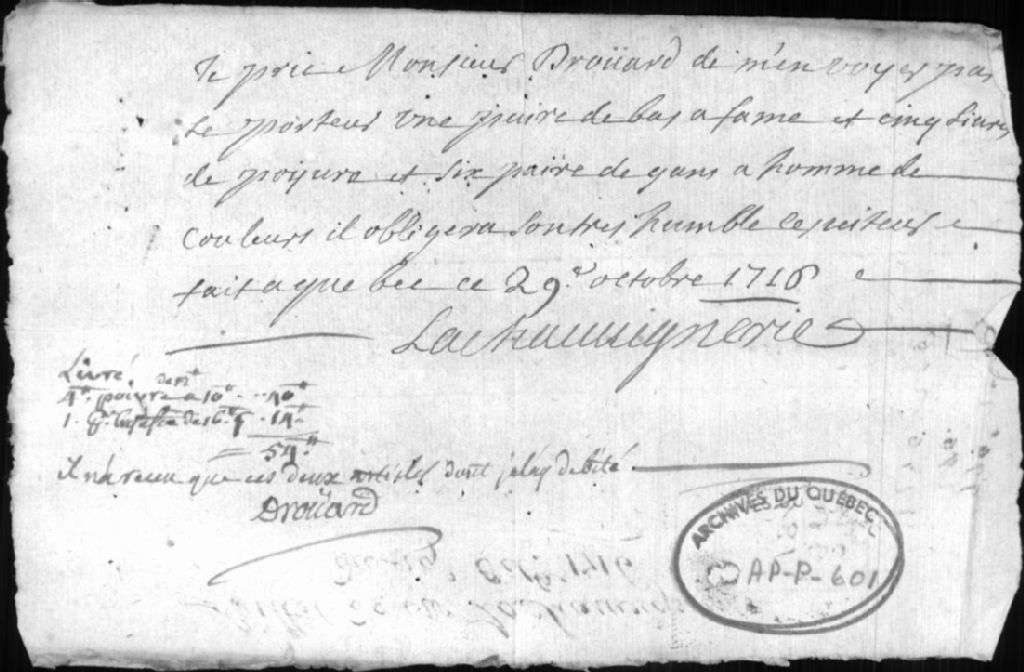 Je prie Monsieur Droüard de m'envoyer par
le porteur une paire de bas a fame et cinq livres
de poyvre et six paire de gans a homme de
couleurs il obligera son tres humble
fait a que bec ce 29.e octobre 1716
Lachauvignerie
Livré
4# poivre a 10# .. 40#
1. p.re bas 14#
= 54#
il n'a reseu que ces deux articles dont je l'ay debité
Droüard
ARCHIVES DU QUÉBEC
AP-P-601
8bre 1716
Lachauvig